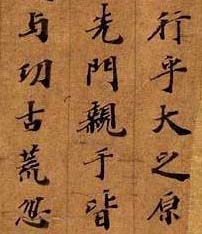 行乎大之原
先門親于皆
与切古荒忽